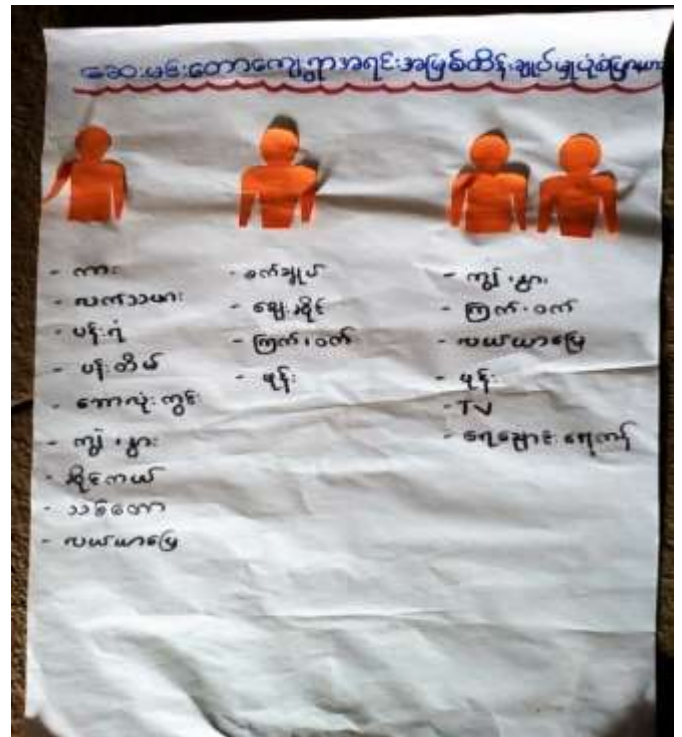 ဆေးမင်းတောကျေးရွာအရင်းအမြစ်ထိန်းချုပ်မှုပုံစံပြဇယား
- ကား
- လက်သမား
- ပန်းရံ
- ပန်းတိမ်
- ဘောလုံးကွင်း
- ကျွဲ၊နွား
- ဆိုင်ကယ်
- သစ်တော
- လယ်ယာမြေ
- စက်ချုပ်
- ဈေးဆိုင်
- ကြက်၊ဝက်
- ဖုန်း
- ကျွဲ၊နွား
- ကြက်၊ဝက်
- လယ်ယာမြေ
- ဖုန်း
- TV
- ရေချောင်းရေကန်